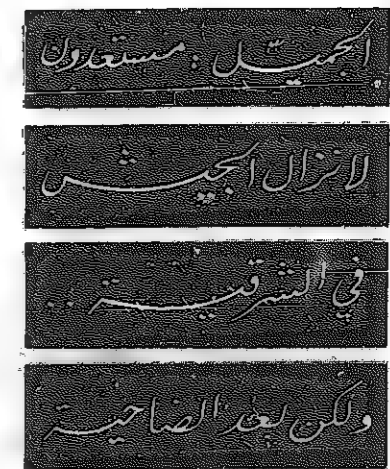 الجميّل : مستعدون
لانزال الجيش
في الشرقية ..
ولكن بعد الضاحية